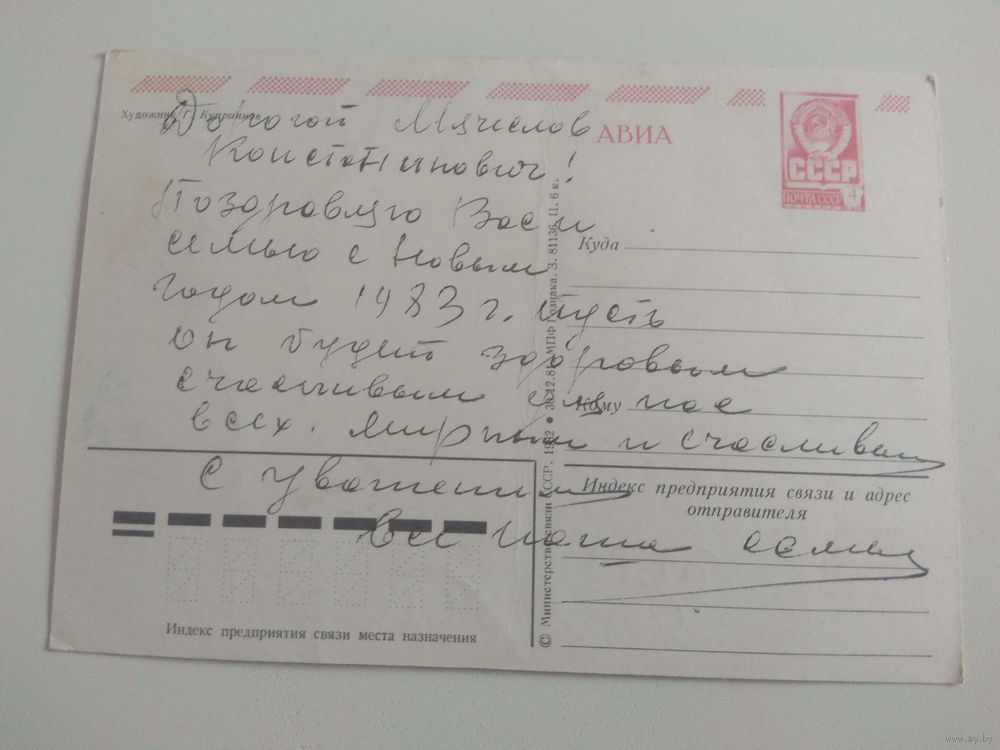 Художник Г. Куприянов
Дорогой Мячеслов
Константинович!
Поздровляю Вас и
семью с Новым
годом 1983 г. пусть
он будет здоровым
счастливым для нас
всех. мирным и счасливым
С уважением
вся наша семья
АВИА
СССР
ПОЧТА СССР 4
Куда
Кому
Индекс предприятия связи и адрес
отправителя
Индекс предприятия связи места назначения
© Министерство связи СССР, 1982 ● МПФ Гознака. З. 81136. Ц. 6 к.
www.ay.by